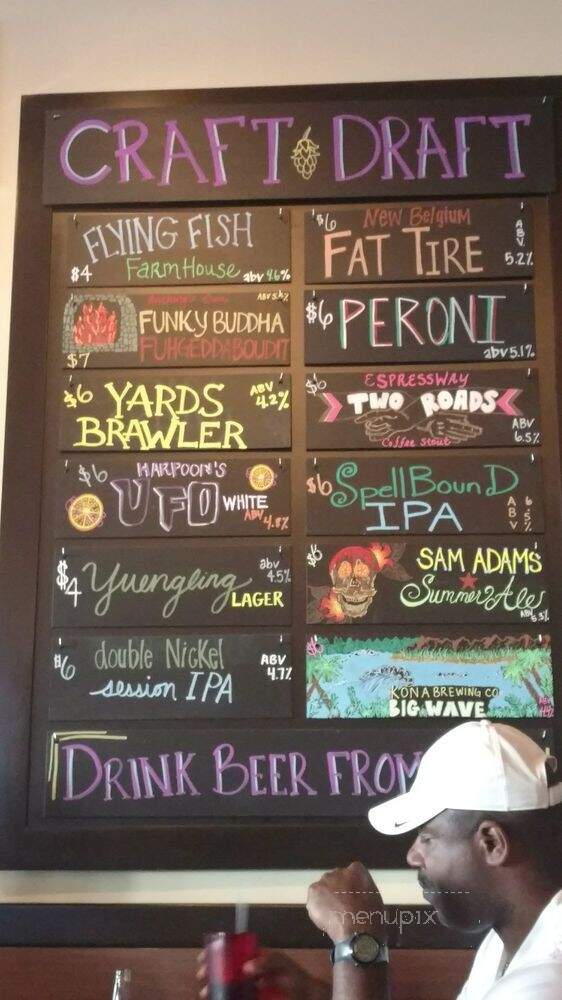 CRAFT DRAFT
FLYING FISH
$4 FarmHouse abv 4.6%
FUNKY BUDDHA
FUHGEDDABOUDIT
$7
$6 YARDS ABV 4.2%
BRAWLER
$6 HARPOON'S
UFO WHITE
ABV 4.8%
$4 Yuengling abv 4.5%
LAGER
$6 double Nickel ABV 4.7%
session IPA
$6 New Belgium
FAT TIRE ABV 5.2%
$6 PERONI
abv 5.1%
$6 ESPRESSWAY
TWO ROADS
Coffee Stout
ABV 6.5%
$6 SpellBounD
IPA ABV 6.5%
SAM ADAMS
Summer Ale
ABV 5.3%
KONA BREWING CO
BIG WAVE
DRINK BEER FROM
menupix